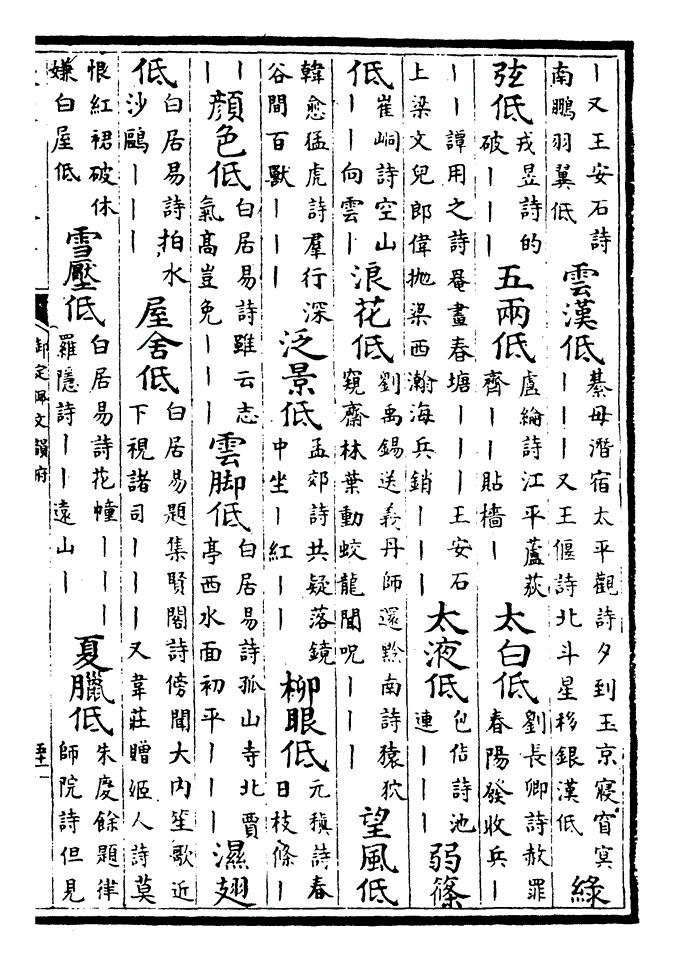 丨又王安石詩南鵬羽翼低 雲漢低 綦毋潛宿太平觀詩夕到玉京寢窅冥丨丨丨又王偃詩北斗星移銀漢低 綠
弦低 戎昱詩的破丨丨丨 五兩低 盧綸詩江平蘆荻齊丨丨貼檣丨 太白低 劉長卿詩赦罪春陽發收兵丨
丨丨譚用之詩罨畫春塘丨丨丨丨王安石上梁文兒郎偉拋梁西瀚海兵銷丨丨丨 太液低 包佶詩池連丨丨丨 弱篠
低 崔峒詩空山丨丨向雲丨 浪花低 劉禹錫送義丹師還黔南詩猿狖窺齋林葉動蛟龍聞呪丨丨丨 望風低
韓愈猛虎詩羣行深谷間百獸丨丨丨 泛景低 孟郊詩共疑落鏡中坐丨紅丨丨 柳眼低 元稹詩春日枝條丨
丨丨 顏色低 白居易詩雖云志氣高豈免丨丨丨 雲脚低 白居易詩孤山寺北賈亭西水面初平丨丨丨 濕翅
低 白居易詩拍水沙鷗丨丨丨 屋舍低 白居易題集賢閣詩傍聞大内笙歌近下視諸司丨丨丨又韋莊贈姬人詩莫
恨紅裙破休嫌白屋低 雪壓低 白居易詩花幢丨丨丨羅隱詩丨丨遠山丨 夏臘低 朱慶餘題律師院詩但見
御定佩文韻府